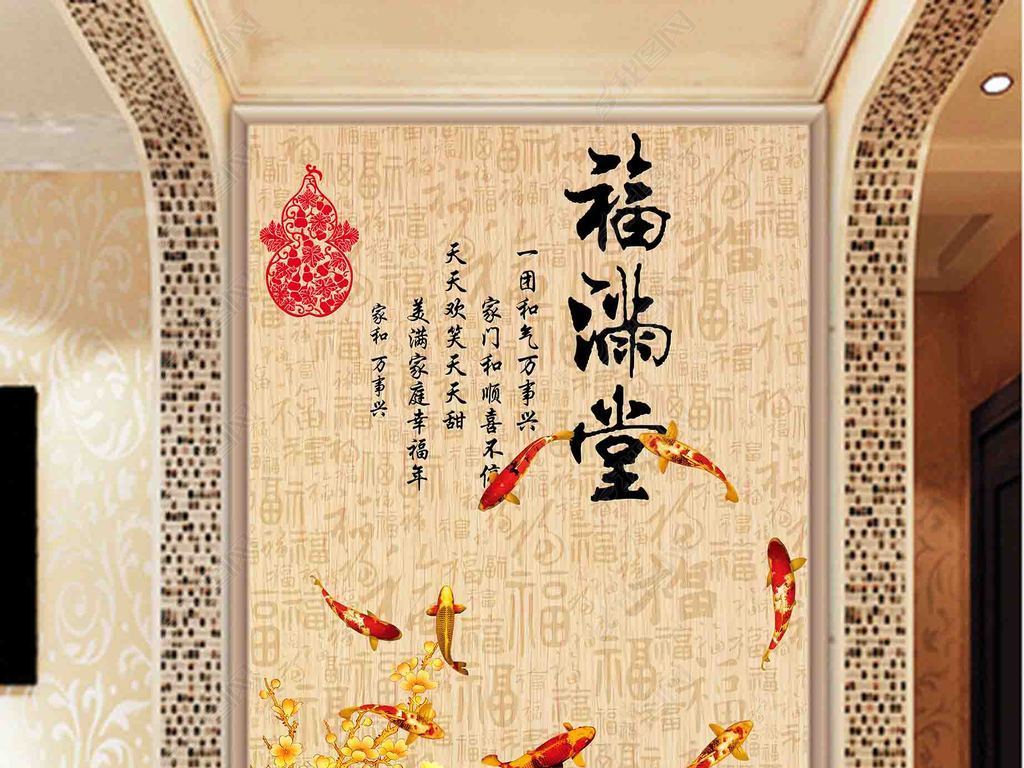 福满堂
一团和气万事兴
家门和顺喜不
天天欢笑天天甜
美满家庭幸福年
家和 万事兴